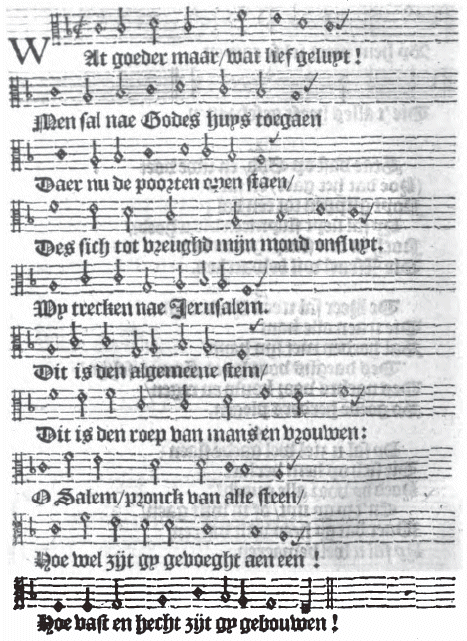 WAt goeder maar/wat lief geluyt!
Men sal nae Godes huys toegaen
Daer nu de poorten open staen/
Des sich tot vreughd mijn mond onsluyt.
Wy trecken nae Jerusalem.
Dit is den algemeene stem/
Dit is den roep van mans en vrouwen:
O Salem/pronck van alle steen/
Hoe wel zijt gy gevoeght aen een!
Hoe vast en hecht zijt gy gebouwen!